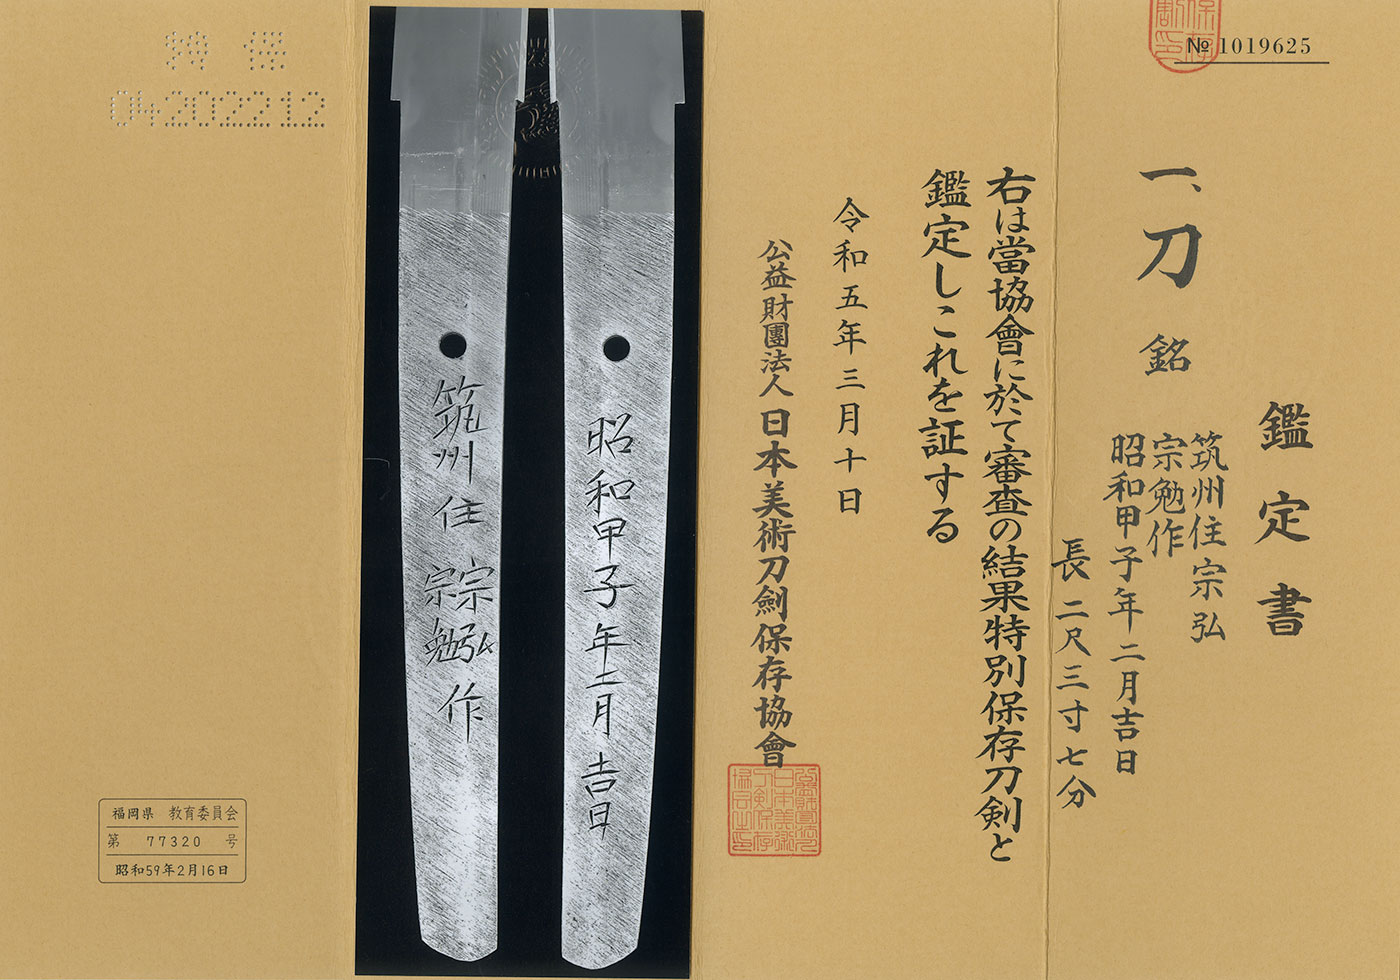 № 1019625
鑑定書
一、刀 銘
筑州住宗弘
宗勉作
昭和甲子年二月吉日
長 二尺三寸七分
右は當協會に於て審査の結果特別保存刀剣と
鑑定しこれを証する
令和五年三月十日
公益財團法人 日本美術刀劍保存協會
昭和甲子年二月吉日
筑州住宗弘
宗勉作
特保
04202212
福岡県 教育委員会
第 77320 号
昭和59年2月16日